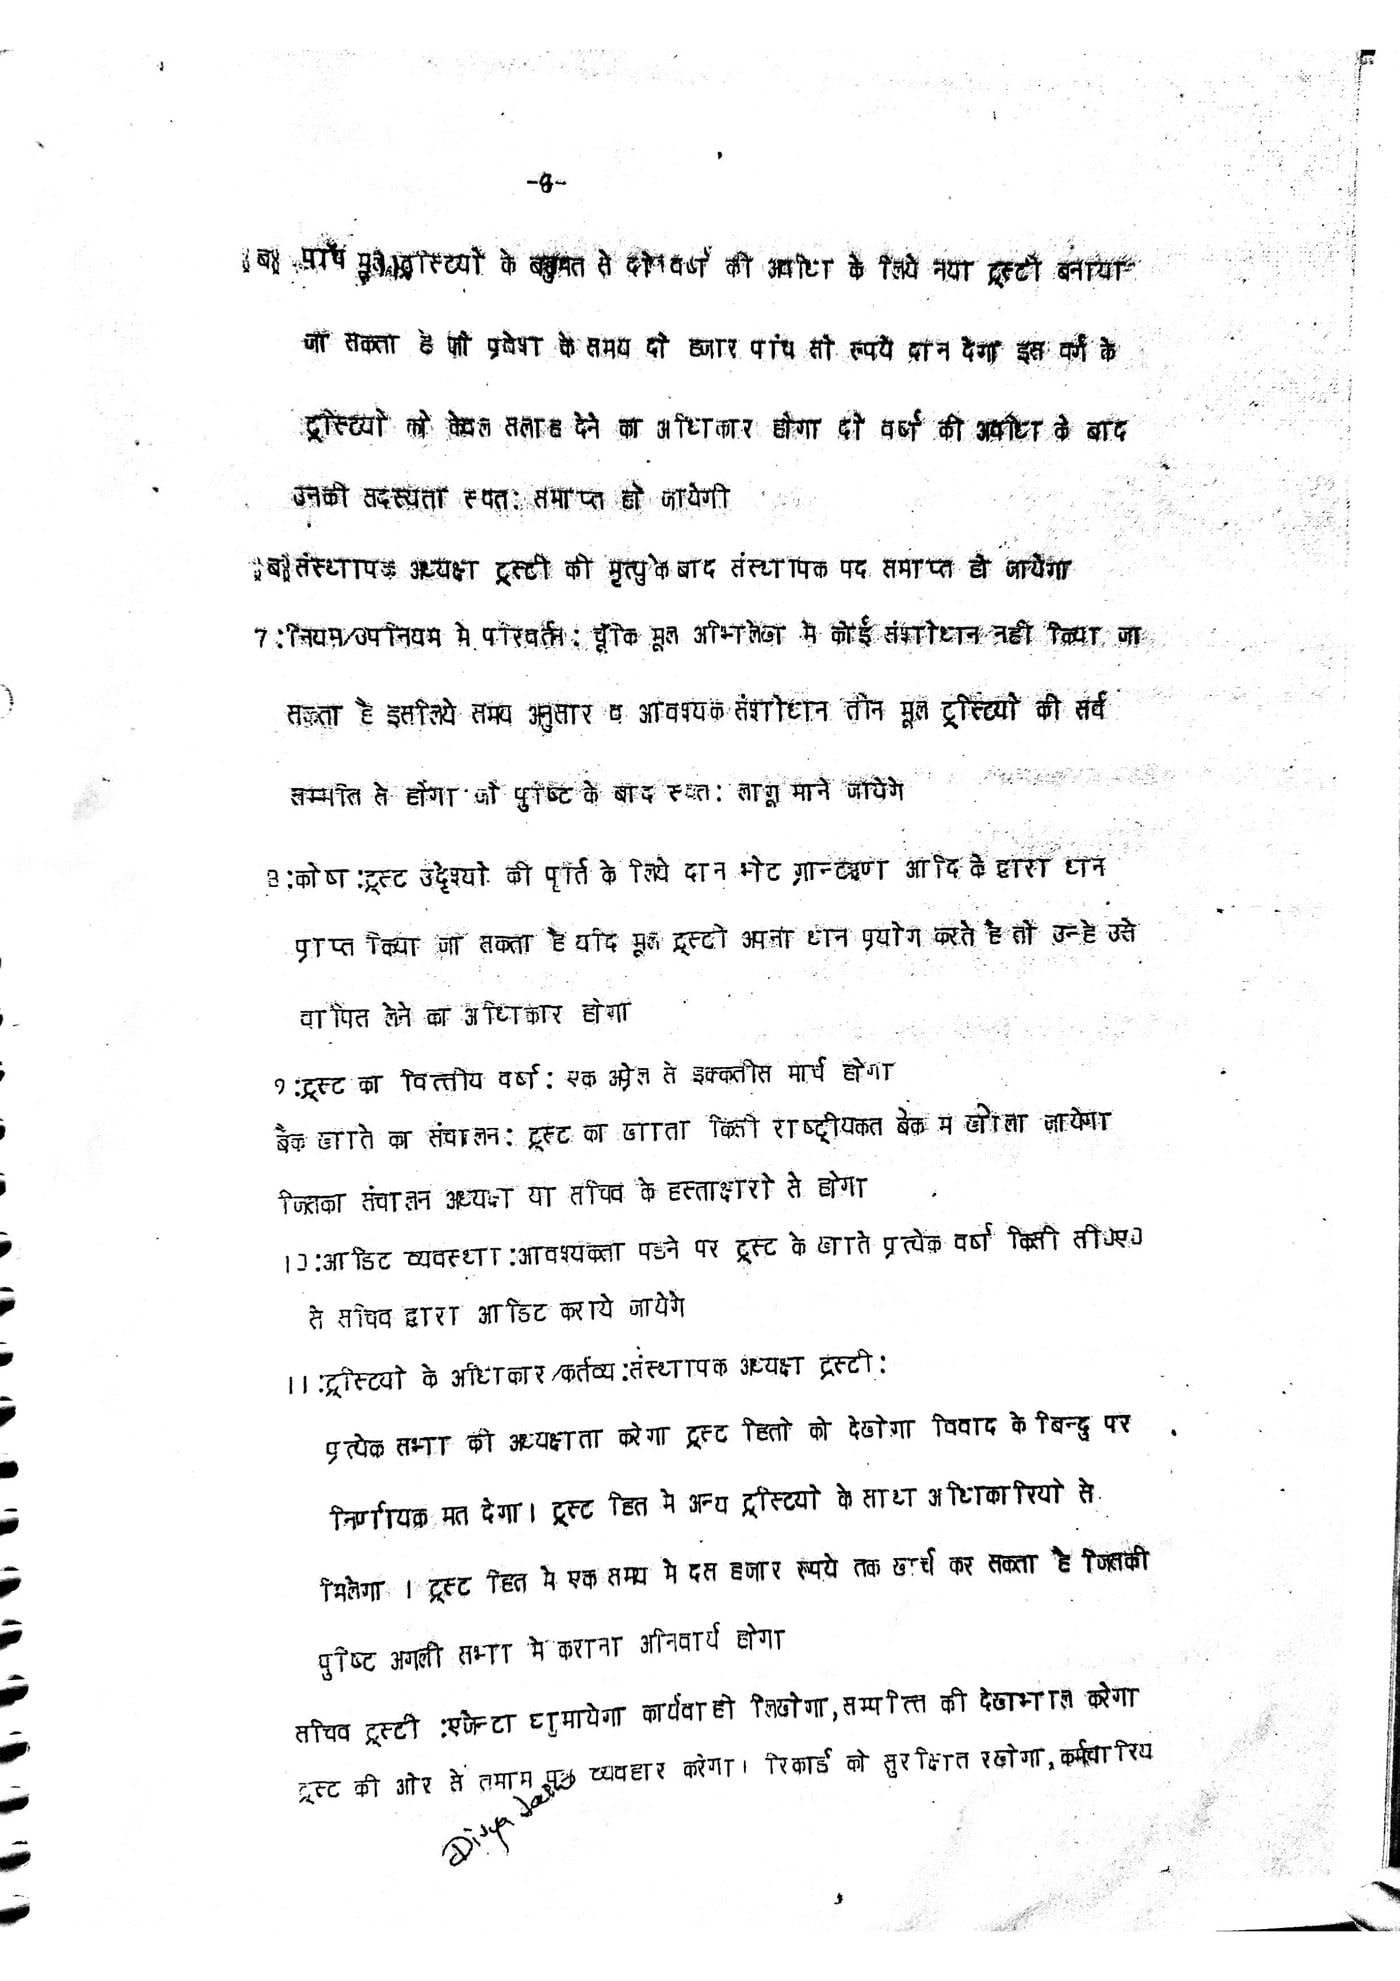 §ब§ पाँच मूल ट्रस्टियों के बहुमत से दो वर्ष की अवधि के लिये नया ट्रस्टी बनाया
जा सकता है जो प्रवेश के समय दो हजार पांच सौ रूपये दान देगा इस वर्ग के
ट्रस्टियों को केवल सलाह देने का अधिकार होगा दो वर्ष की अवधि के बाद
उनकी सदस्यता स्वत: समाप्त हो जायेगी
§ब§ संस्थापक अध्यक्ष ट्रस्टी की मृत्यु के बाद संस्थापक पद समाप्त हो जायेगा
7:नियम/उपनियम मे परिवर्तन: चूँकि मूल अभिलेख मे कोई संशोधन नही किया जा
सकता है इसलिये समय अनुसार व आवश्यक संशोधान तीन मूल ट्रस्टियो की सर्व
सम्मति से होगा जो पुष्टि के बाद स्वत: लागू माने जायेगे
8:कोष :ट्रस्ट उद्देश्यो की पूर्ति के लिये दान भेट ग्रान्ट ऋण आदि के द्वारा धान
प्राप्त किया जा सकता है यदि मूल ट्रस्टी अपना धान प्रयोग करते है तो उन्हे उसे
वापित लेने का अधिकार होगा
9:ट्रस्ट का वित्तीय वर्ष: एक अप्रेल से इक्कतीस मार्च होगा
बैंक खाते का संचालन: ट्रस्ट का खाता किसी राष्ट्रीयकत बैक मे खोला जायेगा
जिसका संचालन अध्यक्ष या सचिव के हस्ताक्षारो से होगा
10:आडिट व्यवस्था :आवश्यकता पडने पर ट्रस्ट के खाते प्रत्येक वर्ष किसी सी0ए0
से सचिव द्वारा आडिट कराये जायेगे
11:ट्रस्टियो के अधिकार/कर्तव्य:संस्थापक अध्यक्ष ट्रस्टी:
प्रत्येक सभा की अध्यक्षता करेगा ट्रस्ट हितो को देखेगा विवाद के बिन्दु पर
निर्णायक मत देगा। ट्रस्ट हित मे अन्य ट्रस्टियो के साथ अधिकारियो से
मिलेगा । ट्रस्ट हित मे एक समय मे दस हजार रूपये तक खर्च कर सकता है जिसकी
पुष्टि अगली सभा मे कराना अनिवार्य होगा
सचिव ट्रस्टी :एजेन्टा घुमायेगा कार्यवाही लिखेगा,सम्पत्ति की देखभाल करेगा
ट्रस्ट की ओर से तमाम पत्र व्यवहार करेगा। रिकार्ड को सुरक्षित रखेगा,कर्मचारिय
Divya